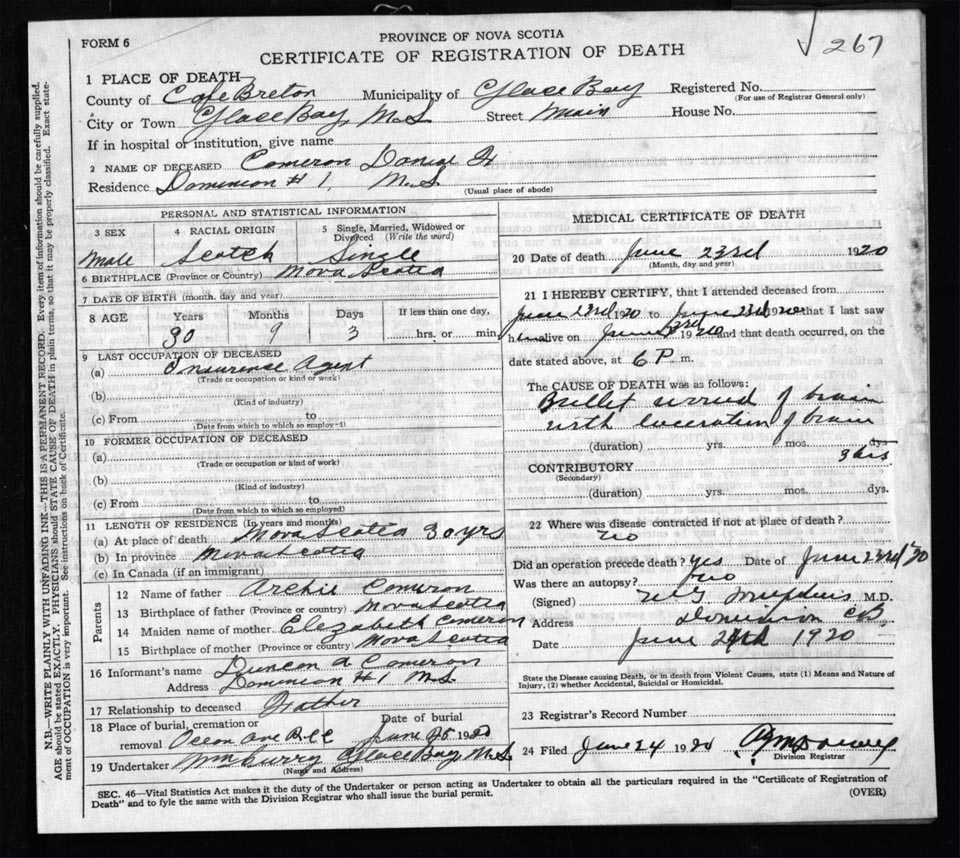 FORM 6
PROVINCE OF NOVA SCOTIA
CERTIFICATE OF REGISTRATION OF DEATH
267
1 PLACE OF DEATH—
County of Cape Breton Municipality of Glace Bay Registered No.
(For use of Registrar General only)
City or Town Glace Bay, N.S. Street Main House No.
If in hospital or institution, give name
2 NAME OF DECEASED Cameron Daniel H
Residence Dominion #1, N.S. (Usual place of abode)
PERSONAL AND STATISTICAL INFORMATION
3 SEX 4 RACIAL ORIGIN 5 Single, Married, Widowed or Divorced (Write the word)
Male Scotch Single
6 BIRTHPLACE (Province or Country) Nova Scotia
7 DATE OF BIRTH (month, day and year)
8 AGE Years Months Days If less than one day,
30 9 3 hrs. or min.
9 LAST OCCUPATION OF DECEASED
(a) Insurance Agent
(Trade or occupation or kind or work)
(b)
(Kind of industry)
(c) From to
(Date from which to which so employed)
10 FORMER OCCUPATION OF DECEASED
(a)
(Trade or occupation or kind of work)
(b)
(Kind of industry)
(c) From to
(Date from which to which so employed)
11 LENGTH OF RESIDENCE (In years and months)
(a) At place of death Nova Scotia 30 yrs
(b) In province Nova Scotia
(c) In Canada (if an immigrant)
Parents
12 Name of father Archie Cameron
13 Birthplace of father (Province or country) Nova Scotia
14 Maiden name of mother Elizabeth Cameron
15 Birthplace of mother (Province or country) Nova Scotia
16 Informant's name Duncan A Cameron
Address Dominion #1 N.S.
17 Relationship to deceased Father
18 Place of burial, cremation or Date of burial
removal Ocean Ave June 25 1920
19 Undertaker Wm Curry Glace Bay, N.S.
(Name and Address)
MEDICAL CERTIFICATE OF DEATH
20 Date of death June 23rd 1920
(Month, day and year)
21 I HEREBY CERTIFY, that I attended deceased from
June 23rd 1920 to June 23rd 1920 that I last saw
h alive on June 23rd 1920 and that death occurred, on the
date stated above, at 6 P. m.
The CAUSE OF DEATH was as follows:
Bullet wound of brain
with laceration of brain
(duration) yrs. mos. dys.
3 hrs
CONTRIBUTORY
(Secondary)
(duration) yrs. mos. dys.
22 Where was disease contracted if not at place of death?
no
Did an operation precede death? yes Date of June 23rd/20
Was there an autopsy? no
(Signed) M.D.
Address Dominion C.B.
Date June 24th 1920
State the Disease causing Death, or in death from Violent Causes, state (1) Means and Nature of Injury, (2) whether Accidental, Suicidal or Homicidal.
23 Registrar's Record Number
24 Filed June 24 1920
Division Registrar
SEC. 46—Vital Statistics Act makes it the duty of the Undertaker or person acting as Undertaker to obtain all the particulars required in the "Certificate of Registration of
Death" and to fyle the same with the Division Registrar who shall issue the burial permit. (OVER)
N.B.—WRITE PLAINLY WITH UNFADING INK—THIS IS A PERMANENT RECORD. Every item of information should be carefully supplied.
AGE should be stated EXACTLY. PHYSICIANS should STATE CAUSE OF DEATH in plain terms, so that it may be properly classified. Exact state-
ment of OCCUPATION is very important. See instructions on back of Certificate.